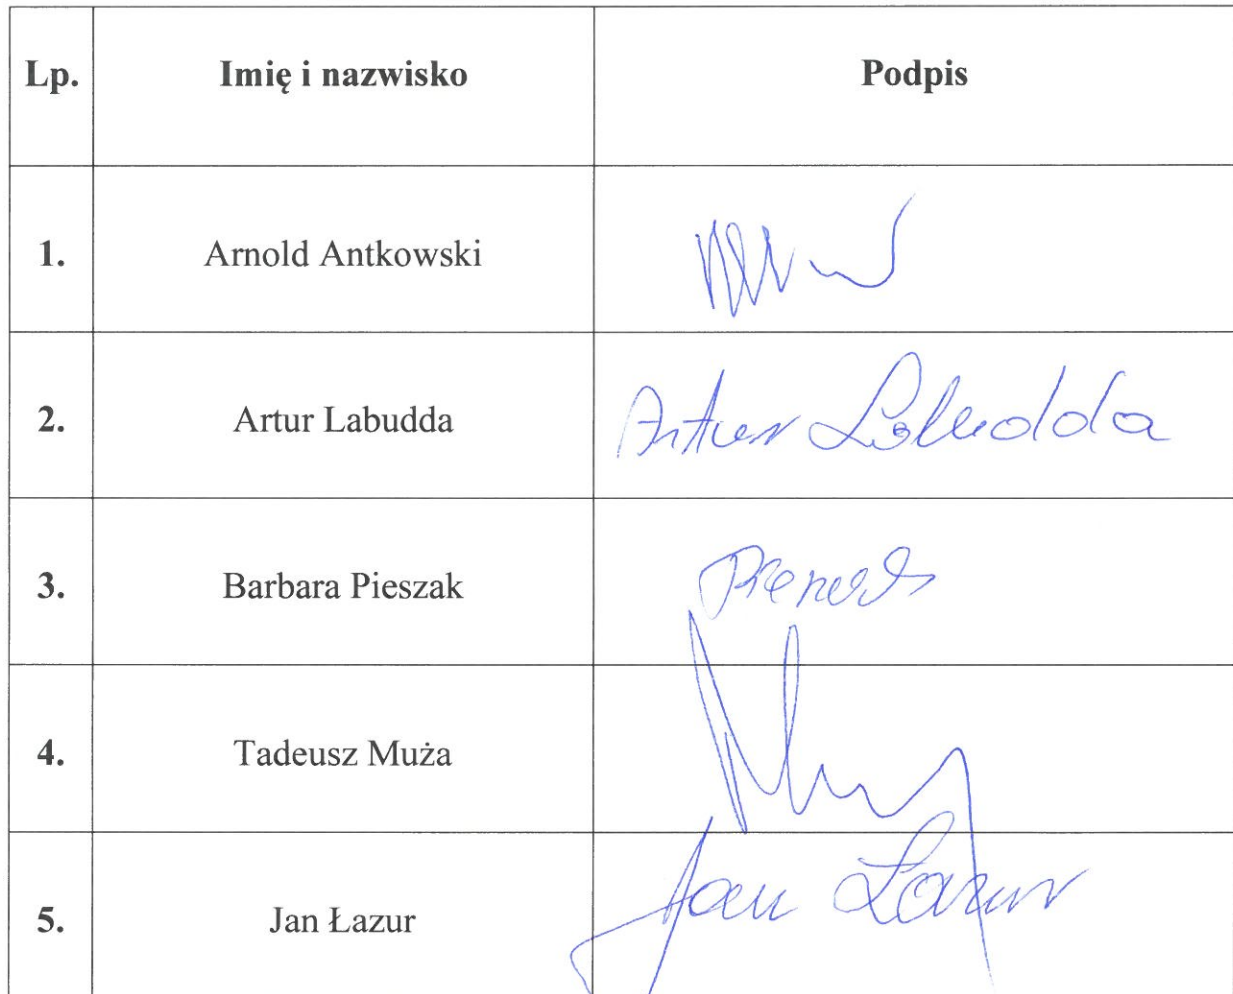 Lp. Imię i nazwisko Podpis
1. Arnold Antkowski
2. Artur Labudda Artur Labudda
3. Barbara Pieszak
4. Tadeusz Muża
5. Jan Łazur Jan Łazur